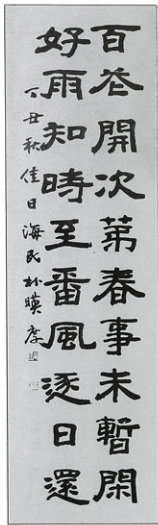 百花開次第春事未暫閑
好雨知時至番風逐日還
丁丑秋佳日海民朴暎孝